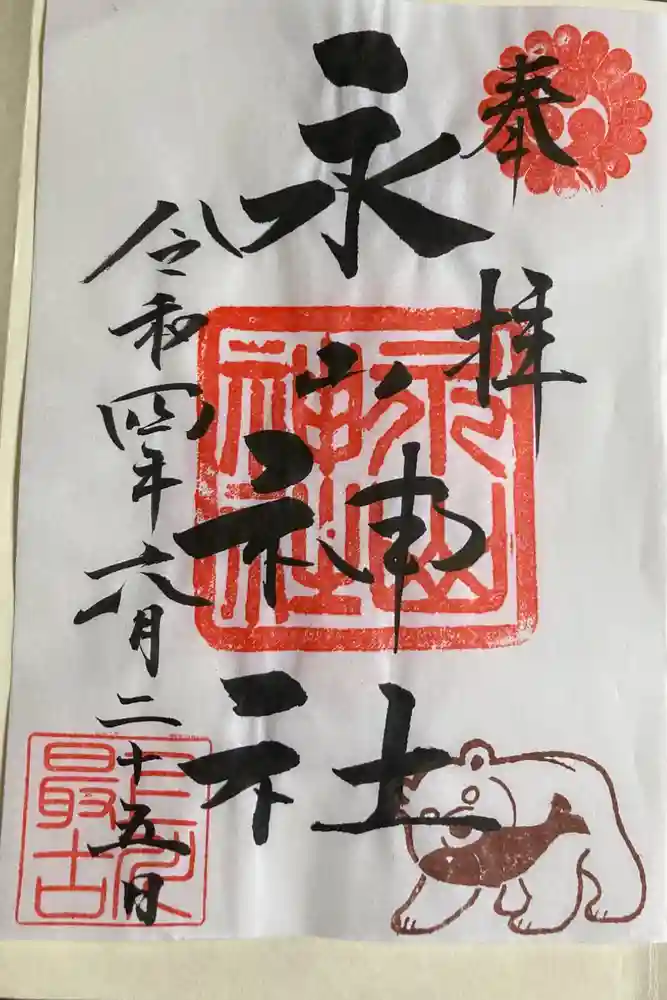 奉拝
永山神社
永山神社
令和四年六月二十五日
最古